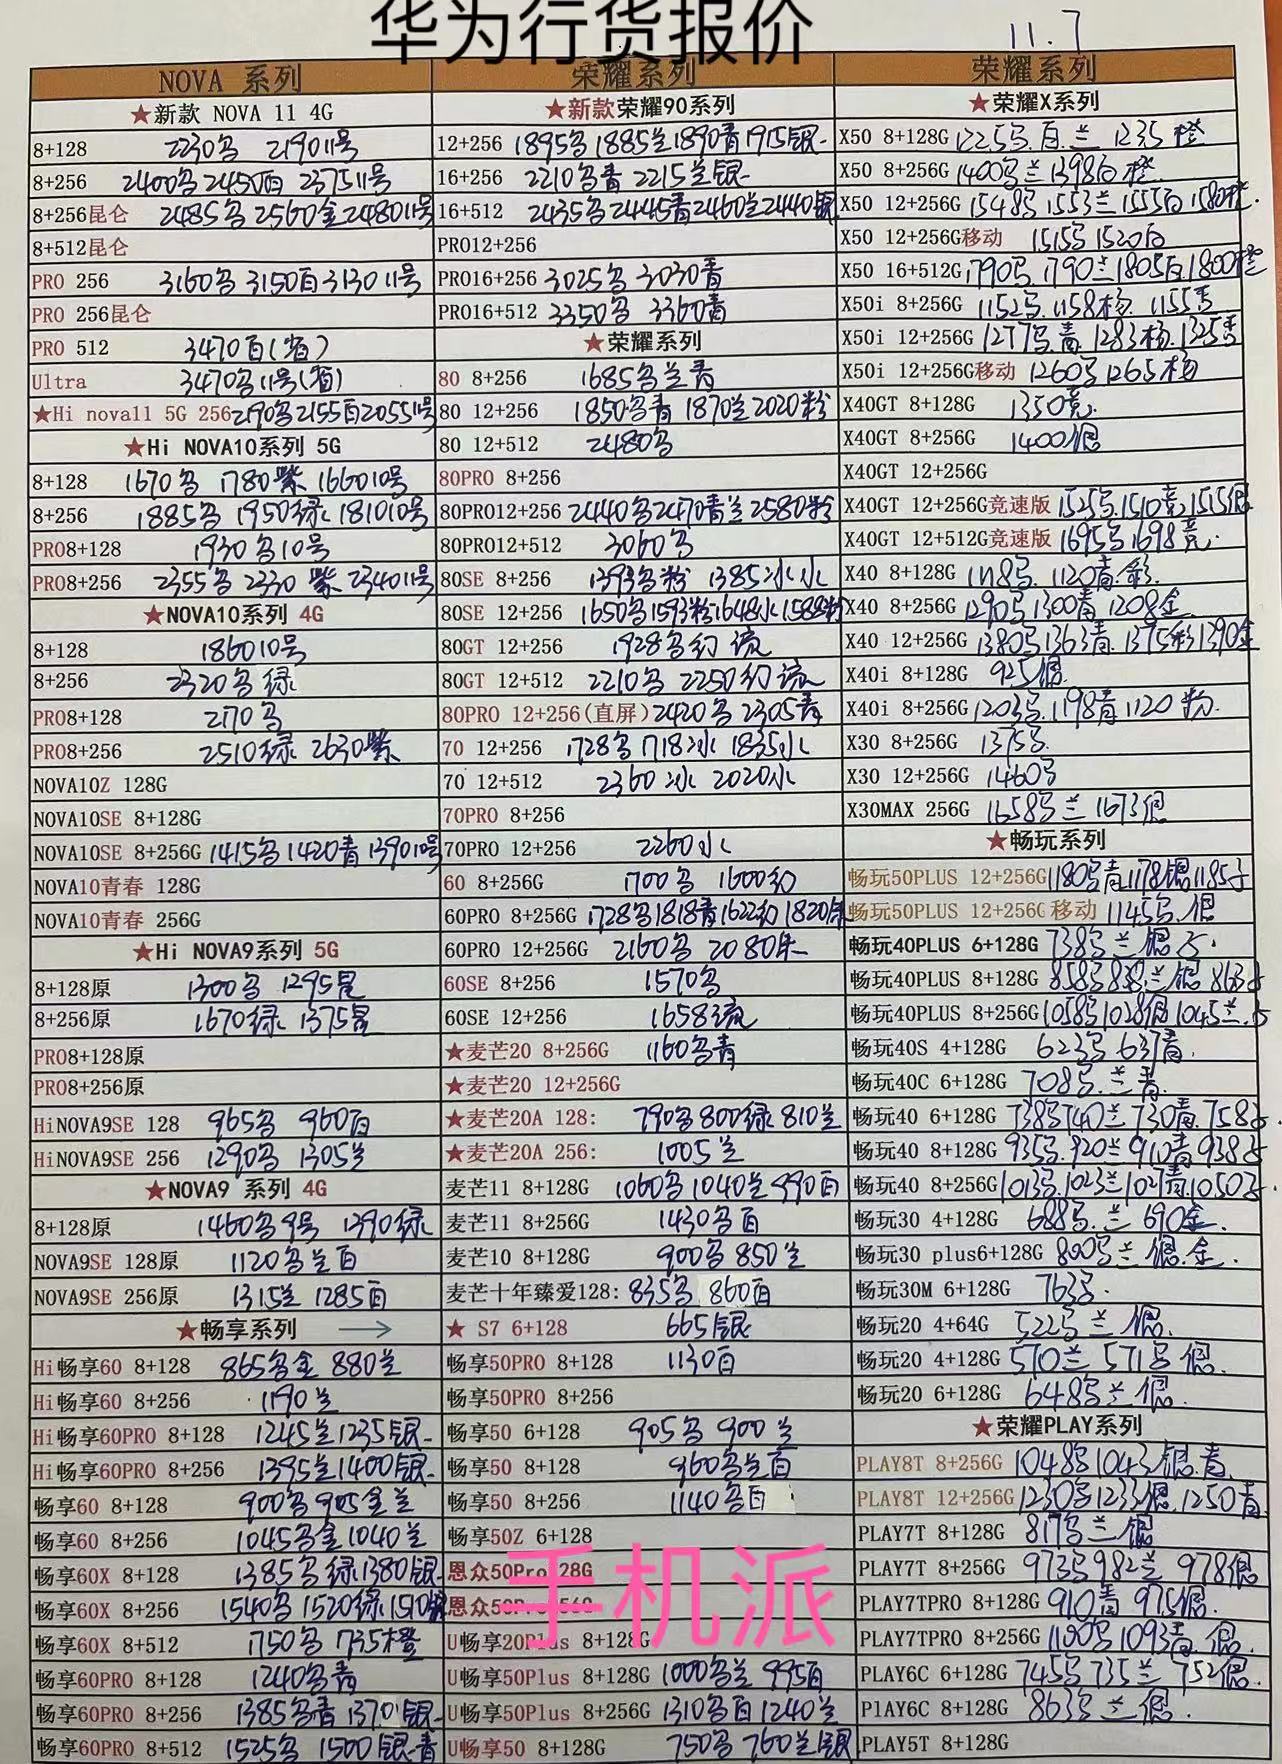 华为行货报价
11.7
NOVA 系列
★新款 NOVA 11 4G
8+128 2230各 2190 11号
8+256 2400各 2450百 2375 11号
8+256昆仑 2485各 2560金 2480 11号
8+512昆仑
PRO 256 3160各 3150百 3130 11号
PRO 256昆仑
PRO 512 3470百(省)
Ultra 3470各 11号(省)
★Hi nova11 5G 256 2190各 2155百 2055 11号
★Hi NOVA10系列 5G
8+128 1670各 1780紫 1660 10号
8+256 1885各 1950绿 1810 10号
PRO8+128 1930各 10号
PRO8+256 2355各 2330紫 2340 11号
★NOVA10系列 4G
8+128 1860 10号
8+256 2320各绿
PRO8+128 2170各
PRO8+256 2510绿 2630紫
NOVA10Z 128G
NOVA10SE 8+128G
NOVA10SE 8+256G 1415各 1420青 1390 10号
NOVA10青春 128G
NOVA10青春 256G
★Hi NOVA9系列 5G
8+128原 1300各 1295星
8+256原 1670绿 1375星
PRO8+128原
PRO8+256原
HiNOVA9SE 128 965各 960百
HiNOVA9SE 256 1290各 1305兰
★NOVA9 系列 4G
8+128原 1460各 9号 1390绿
NOVA9SE 128原 1120各兰百
NOVA9SE 256原 1315兰 1285百
★畅享系列 →
Hi畅享60 8+128 865各金 880兰
Hi畅享60 8+256 1190兰
Hi畅享60PRO 8+128 1245兰 1235银
Hi畅享60PRO 8+256 1395兰 1400银
畅享60 8+128 900各 905金兰
畅享60 8+256 1045各金 1040兰
畅享60X 8+128 1385各绿 1380银
畅享60X 8+256 1540各 1520绿 1510银
畅享60X 8+512 1750各 1735橙
畅享60PRO 8+128 1240各青
畅享60PRO 8+256 1385各青 1370银
畅享60PRO 8+512 1525各 1500银青
荣耀系列
★新款荣耀90系列
12+256 1895各 1885兰 1890青 1915银
16+256 2210各青 2215兰银
16+512 2435各 2445青 2460兰 2440银
PRO12+256
PRO16+256 3025各 3030青
PRO16+512 3350各 3360青
★荣耀系列
80 8+256 1685各兰青
80 12+256 1850各青 1870兰 2020粉
80 12+512 2480各
80PRO 8+256
80PRO12+256 2440各 2470青兰 2580粉
80PRO12+512 3060各
80SE 8+256 1393各粉 1385冰水
80SE 12+256 1650各 1593粉 1648水 1588粉
80GT 12+256 1928各幻流
80GT 12+512 2210各 2250幻流
80PRO 12+256(直屏) 2420各 2305青
70 12+256 1728各 1718冰 1835水
70 12+512 2360冰 2020水
70PRO 8+256
70PRO 12+256 2260水
60 8+256G 1700各 1600幻
60PRO 8+256G 1728各 1818青 1622幻 1820朱
60PRO 12+256G 2160各 2080朱
60SE 8+256 1570各
60SE 12+256 1658流
★麦芒20 8+256G 1160各青
★麦芒20 12+256G
★麦芒20A 128: 790各 800绿 810兰
★麦芒20A 256: 1005兰
麦芒11 8+128G 1060各 1040兰 990百
麦芒11 8+256G 1430各百
麦芒10 8+128G 900各 850兰
麦芒十年臻爱128: 835各 860百
★ S7 6+128 665银
畅享50PRO 8+128 1130百
畅享50PRO 8+256
畅享50 6+128 905各 900兰
畅享50 8+128 960各兰百
畅享50 8+256 1140各百
畅享50Z 6+128
恩众50Pro 128G
恩众50Pro 256G
U畅享20Plus 8+128G
U畅享50Plus 8+128G 1000各兰 995百
U畅享50Plus 8+256G 1310各百 1240兰
U畅享50 8+128G 750各 760兰银
荣耀系列
★荣耀X系列
X50 8+128G 1225各.百.兰 1235橙
X50 8+256G 1400各兰 1398白橙
X50 12+256G 1548各 1553兰 1555白 1580橙
X50 12+256G移动 1515各 1520白
X50 16+512G 1790各 1790兰 1805白 1800橙
X50i 8+256G 1152各 1158杨 1155青
X50i 12+256G 1277各.青 1283杨 1325青
X50i 12+256G移动 1260各 1265杨
X40GT 8+128G 1350竞
X40GT 8+256G 1400银
X40GT 12+256G
X40GT 12+256G竞速版 1525各 1510竞 1515银
X40GT 12+512G竞速版 1695各 1698竞
X40 8+128G 1118各 1120青.彩
X40 8+256G 1290各 1300青 1208金
X40 12+256G 1380各 1363青 1395彩 1390金
X40i 8+128G 925银
X40i 8+256G 1203各 1198青 1120粉
X30 8+256G 1375各
X30 12+256G 1460各
X30MAX 256G 1658各兰 1673银
★畅玩系列
畅玩50PLUS 12+256G 1180各青 1178银 1185子
畅玩50PLUS 12+256G 移动 1145各.银
畅玩40PLUS 6+128G 738各兰银子
畅玩40PLUS 8+128G 858各 838兰银 863子
畅玩40PLUS 8+256G 1058各 1028银 1045兰子
畅玩40S 4+128G 623各 637青
畅玩40C 6+128G 708各.兰青
畅玩40 6+128G 738各 740兰 730青 758子
畅玩40 8+128G 935各 920兰 910青 938子
畅玩40 8+256G 1013各 1023兰 1027青 1050子
畅玩30 4+128G 688各.兰 690金
畅玩30 plus6+128G 800各兰银.金
畅玩30M 6+128G 763各
畅玩20 4+64G 522各兰银
畅玩20 4+128G 570兰 571各银
畅玩20 6+128G 648各兰银
★荣耀PLAY系列
PLAY8T 8+256G 1048各 1043银.青
PLAY8T 12+256G 1230各 1233银 1250青
PLAY7T 8+128G 817各兰银
PLAY7T 8+256G 973各 982兰 978银
PLAY7TPRO 8+128G 910青 975银
PLAY7TPRO 8+256G 1100各 1093青.银
PLAY6C 6+128G 745各 735兰 752银
PlAY6C 8+128G 863各兰银
PLAY5T 8+128G
手机派